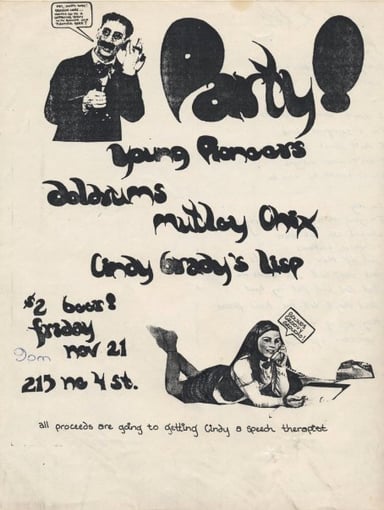 Party!
Young Pioneers
doldrums
mutley Chix
Cindy Grady's Lisp
$2 beer!
friday
9pm nov 21
213 ne 4 st.
all proceeds are going to getting Cindy a speech therapist